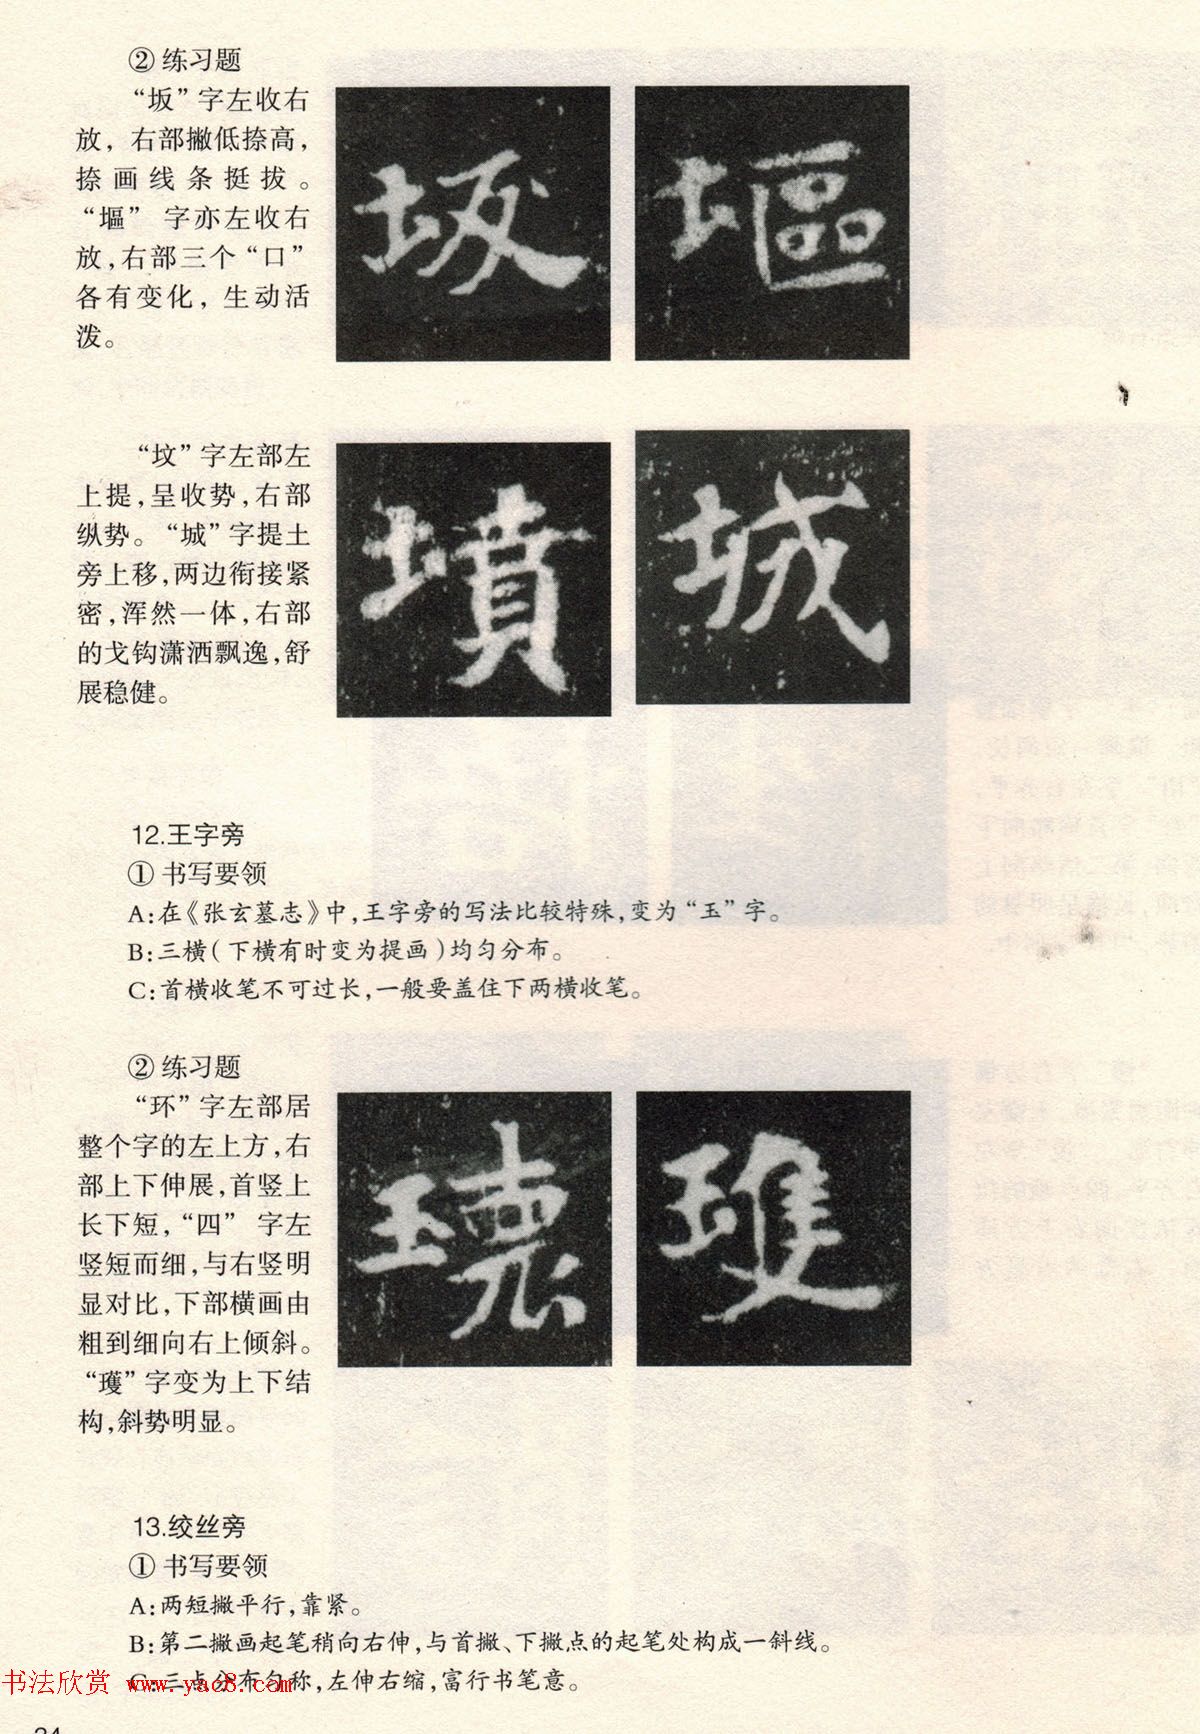 ② 练习题
“坂”字左收右
放，右部撇低捺高，
捺画线条挺拔。
“塸”字亦左收右
放，右部三个“口”
各有变化，生动活
泼。
坂 塸
“坟”字左部左
上提，呈收势，右部
纵势。“城”字提土
旁上移，两边衔接紧
密，浑然一体，右部
的戈钩潇洒飘逸，舒
展稳健。
墳 城
12.王字旁
① 书写要领
A：在《张玄墓志》中，王字旁的写法比较特殊，变为“玉”字。
B：三横（下横有时变为提画）均匀分布。
C：首横收笔不可过长，一般要盖住下两横收笔。
② 练习题
“环”字左部居
整个字的左上方，右
部上下伸展，首竖上
长下短，“四”字左
竖短而细，与右竖明
显对比，下部横画由
粗到细向右上倾斜。
“瓁”字变为上下结
构，斜势明显。
13.绞丝旁
① 书写要领
A：两短撇平行，靠紧。
B：第二撇画起笔稍向右伸，与首撇、下撇点的起笔处构成一斜线。
C：三点分布匀称，左伸右缩，富行书笔意。
书法欣赏 www.yac8.com